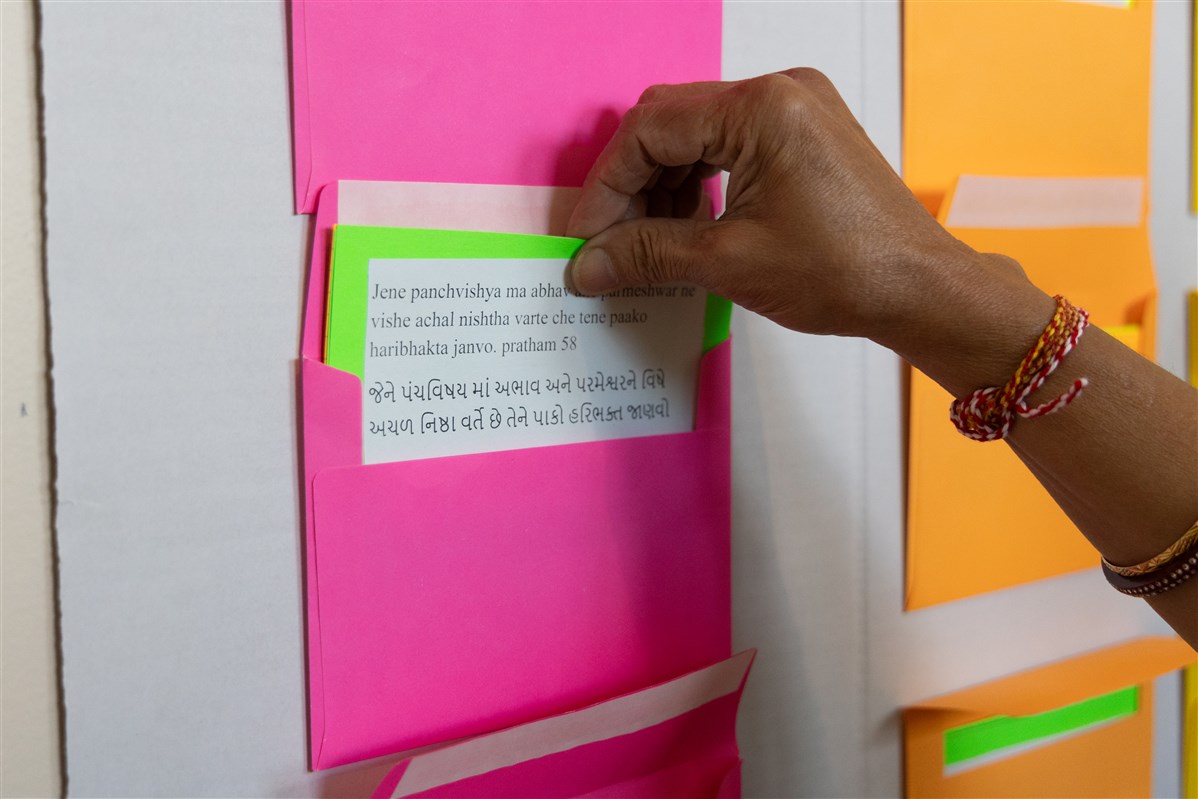 Jene panchvishya ma abhav ane parmeshwar ne
vishe achal nishtha varte che tene paako
haribhakta janvo. pratham 58
જેને પંચવિષય માં અભાવ અને પરમેશ્વરને વિષે
અચળ નિષ્ઠા વર્તે છે તેને પાકો હરિભક્ત જાણવો